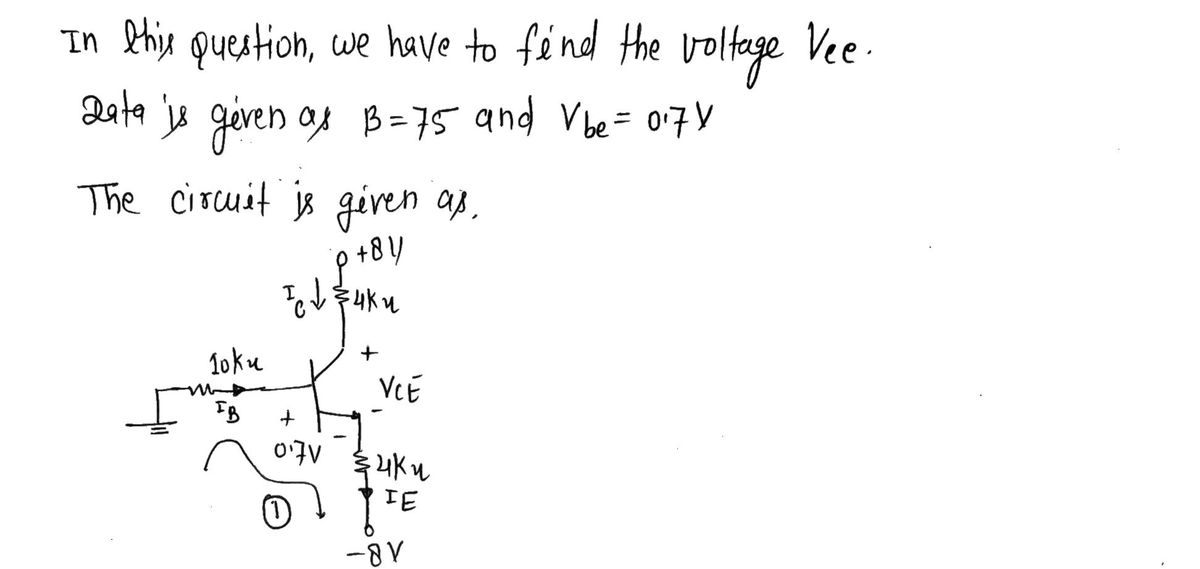 In this question, we have to find the voltage Vce.
Data is given as β=75 and Vbe= 0.7V
The circuit is given as.
+8V
IC 4kΩ
10kΩ
+
VCE
IB
-
+
0.7V
-
4kΩ
IE
1
-8V